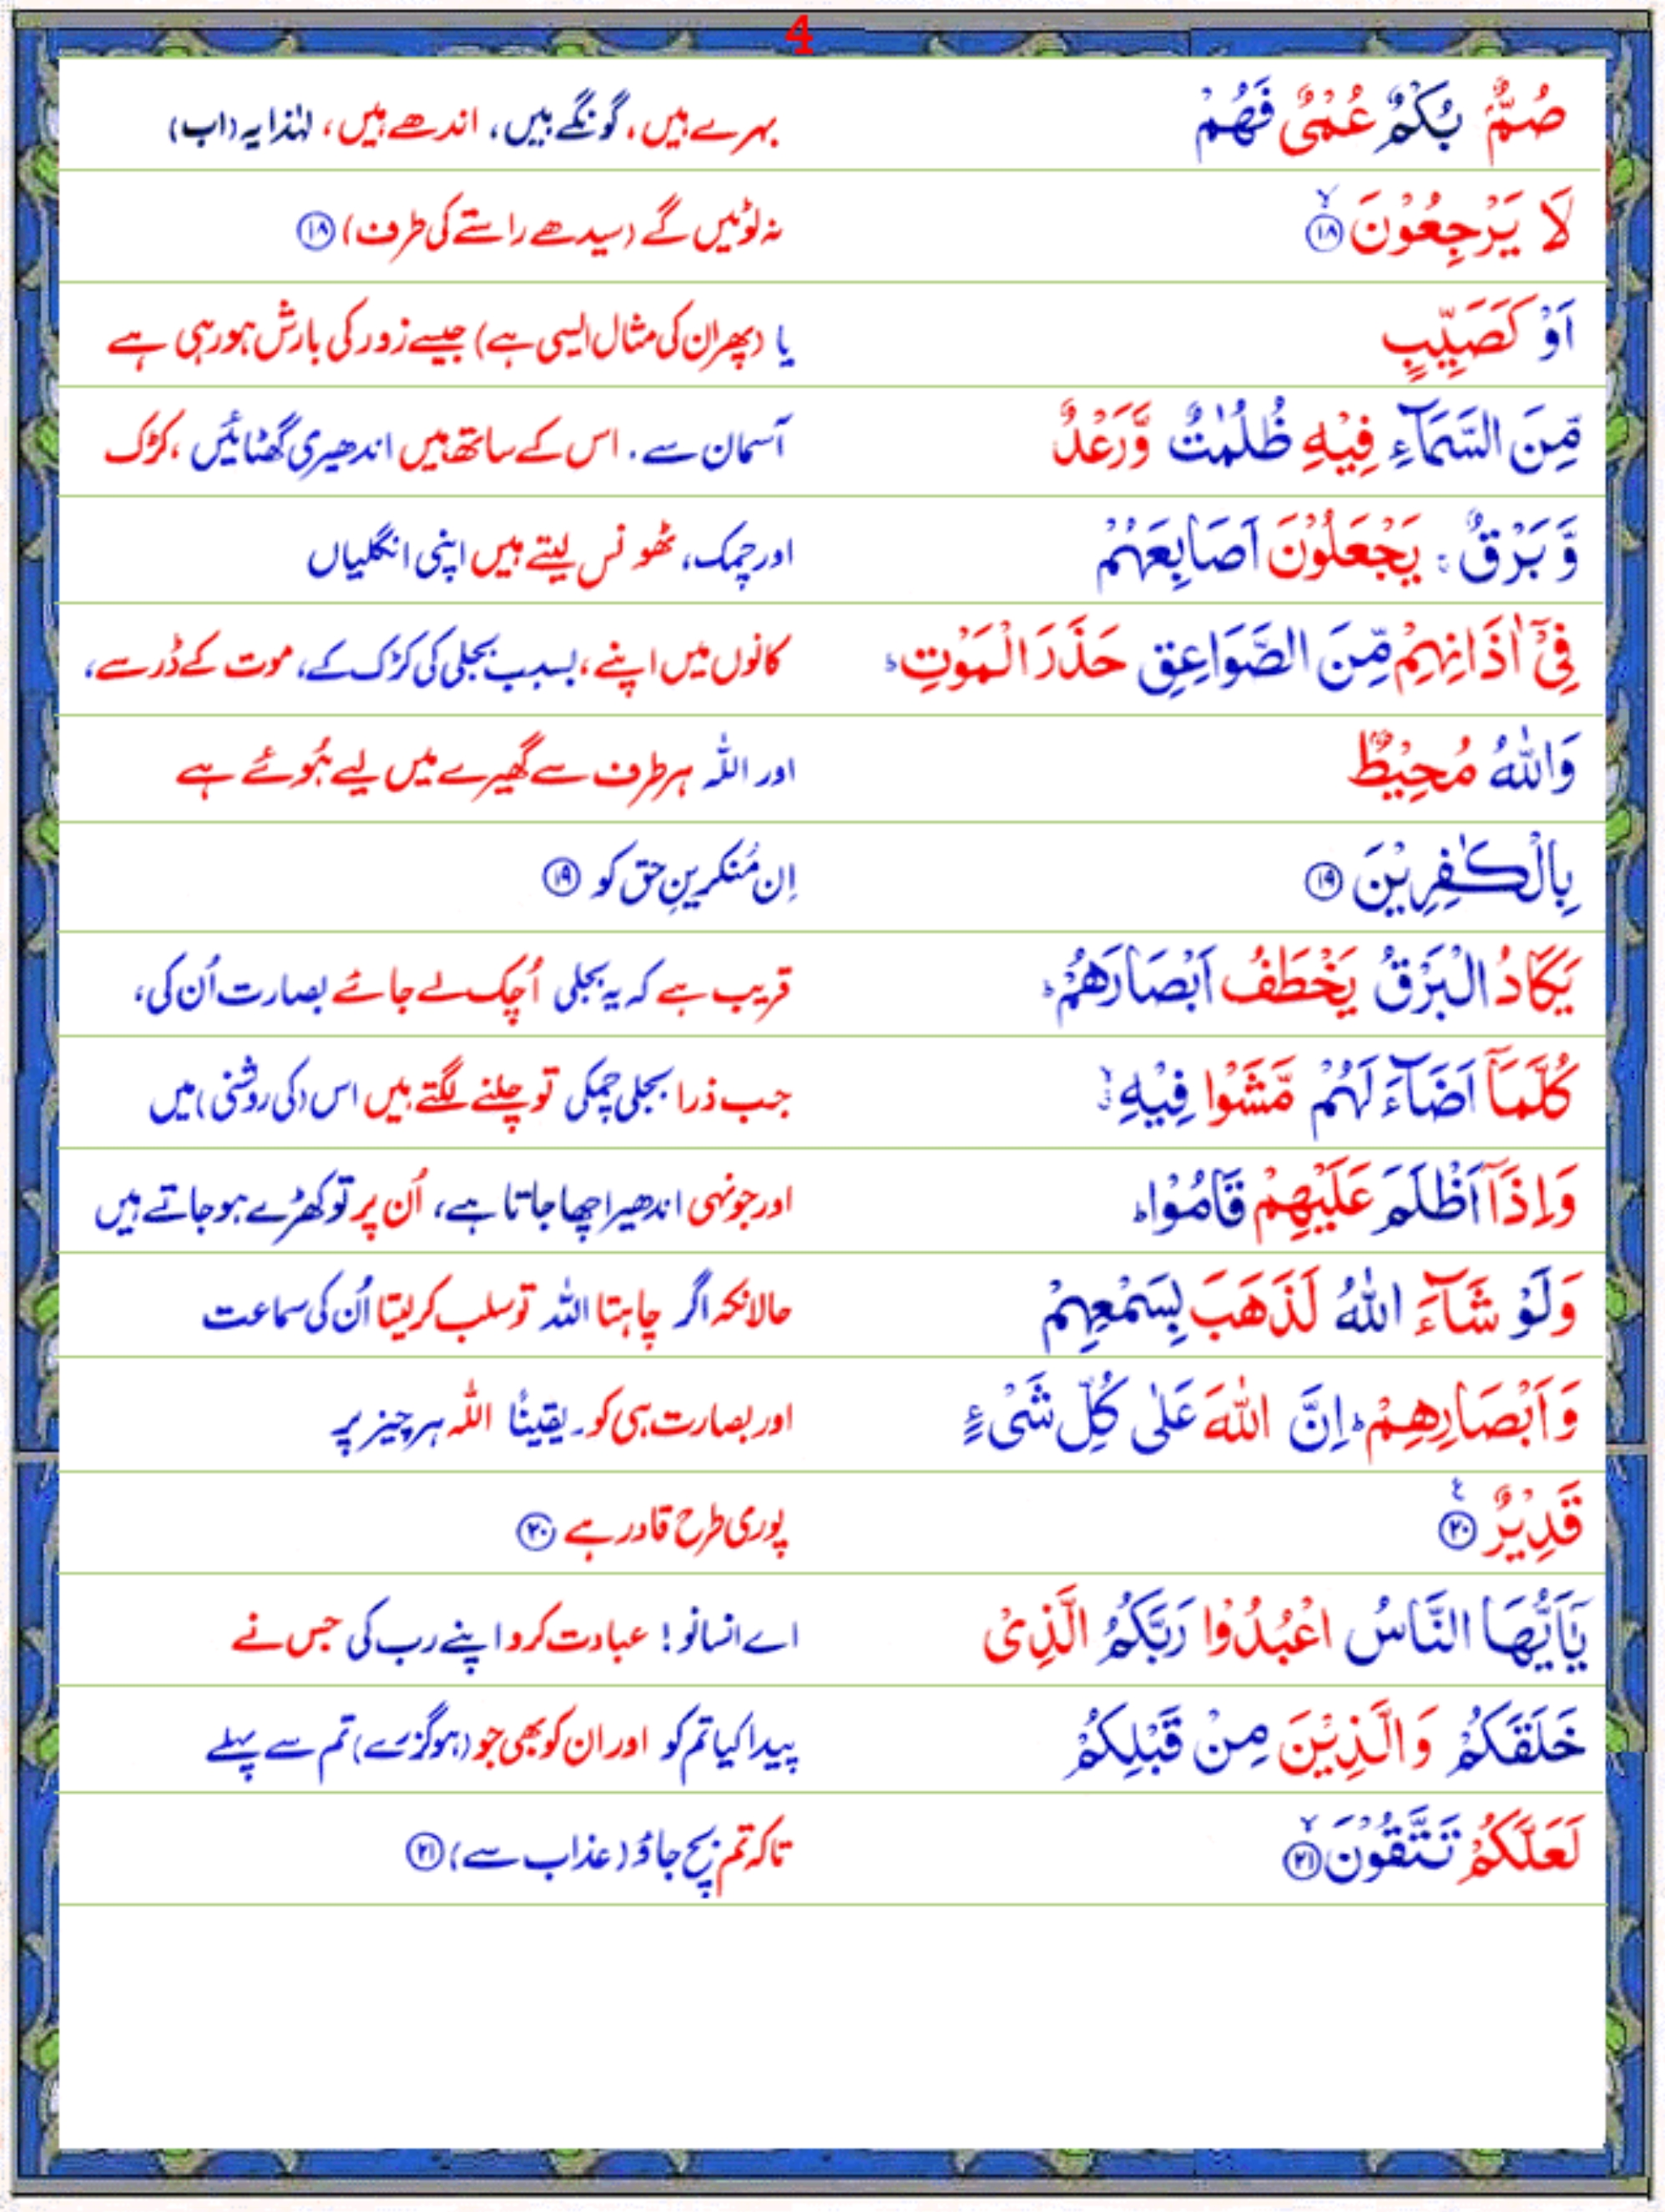 4
صُمٌّۢ بُكْمٌ عُمْىٌ فَهُمْ بہرے ہیں، گونگے ہیں، اندھے ہیں، لہٰذا یہ (اب)
لَا يَرْجِعُوْنَ ۙ‏﴿۱۸﴾ نہ لوٹیں گے (سیدھے راستے کی طرف) ﴿۱۸﴾
اَوْ كَصَيِّبٍ یا (پھر ان کی مثال ایسی ہے) جیسے زور کی بارش ہو رہی ہے
مِّنَ السَّمَآءِ فِيْهِ ظُلُمٰتٌ وَّرَعْدٌ آسمان سے۔ اس کے ساتھ ہیں اندھیری گھٹائیں، کڑک
وَّبَرْقٌ ۚ يَجْعَلُوْنَ اَصَابِعَهُمْ اور چمک، ٹھونس لیتے ہیں اپنی انگلیاں
فِىْٓ اٰذَانِهِمْ مِّنَ الصَّوَاعِقِ حَذَرَ الْمَوْتِ ؕ کانوں میں اپنے، بسبب بجلی کی کڑک کے، موت کے ڈر سے،
وَاللّٰهُ مُحِيْطٌۢ اور اللہ ہر طرف سے گھیرے میں لیے ہُوئے ہے
بِالْكٰفِرِيْنَ ﴿۱۹﴾ اِن مُنکرینِ حق کو ﴿۱۹﴾
يَكَادُ الْبَرْقُ يَخْطَفُ اَبْصَارَهُمْ ؕ قریب ہے کہ یہ بجلی اُچک لے جائے بصارت اُن کی،
كُلَّمَآ اَضَآءَ لَهُمْ مَّشَوْا فِيْهِ ۙ جب ذرا بجلی چمکی تو چلنے لگتے ہیں اس (کی روشنی) میں
وَاِذَآ اَظْلَمَ عَلَيْهِمْ قَامُوْا ؕ اور جونہی اندھیرا چھا جاتا ہے، اُن پر تو کھڑے ہو جاتے ہیں
وَلَوْ شَآءَ اللّٰهُ لَذَهَبَ بِسَمْعِهِمْ حالانکہ اگر چاہتا اللہ تو سلب کر لیتا اُن کی سماعت
وَاَبْصَارِهِمْ ؕ اِنَّ اللّٰهَ عَلٰى كُلِّ شَىْءٍ اور بصارت ہی کو۔ یقیناً اللہ ہر چیز پر
قَدِيْرٌ ‏﴿۲۰﴾ ع پوری طرح قادر ہے ﴿۲۰﴾
يٰٓاَيُّهَا النَّاسُ اعْبُدُوْا رَبَّكُمُ الَّذِىْ اے انسانو! عبادت کرو اپنے رب کی جس نے
خَلَقَكُمْ وَالَّذِيْنَ مِنْ قَبْلِكُمْ پیدا کیا تم کو اور ان کو بھی جو (ہو گزرے) تم سے پہلے
لَعَلَّكُمْ تَتَّقُوْنَ ۙ‏﴿۲۱﴾ تاکہ تم بچ جاؤ (عذاب سے) ﴿۲۱﴾